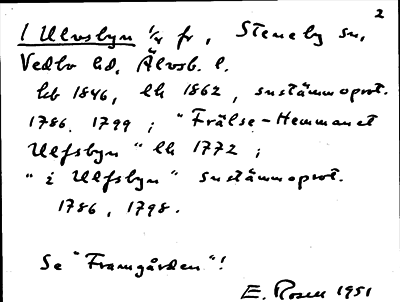 2
1 Ulvsbyn 1/4 fr, Steneby sn,
Vedbo hd, Älvsb. l.
hb 1846, lh 1862, sustämmoprot.
1786, 1799; "Frälse-Hemmanet
Ulfsbyn" lh 1772;
"i Ulfsbyn" sustämmoprot.
1786, 1798.
Se "Framgården"!
E. Rosell 1951